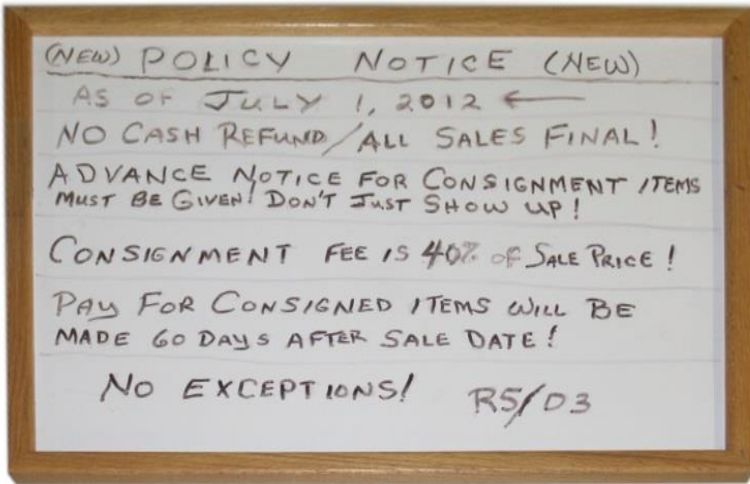 (NEW) POLICY NOTICE (NEW)
AS OF JULY 1, 2012 ←
NO CASH REFUND/ALL SALES FINAL!
ADVANCE NOTICE FOR CONSIGNMENT ITEMS
MUST BE GIVEN! DON'T JUST SHOW UP!
CONSIGNMENT FEE IS 40% OF SALE PRICE!
PAY FOR CONSIGNED ITEMS WILL BE
MADE 60 DAYS AFTER SALE DATE!
NO EXCEPTIONS! RS/D3